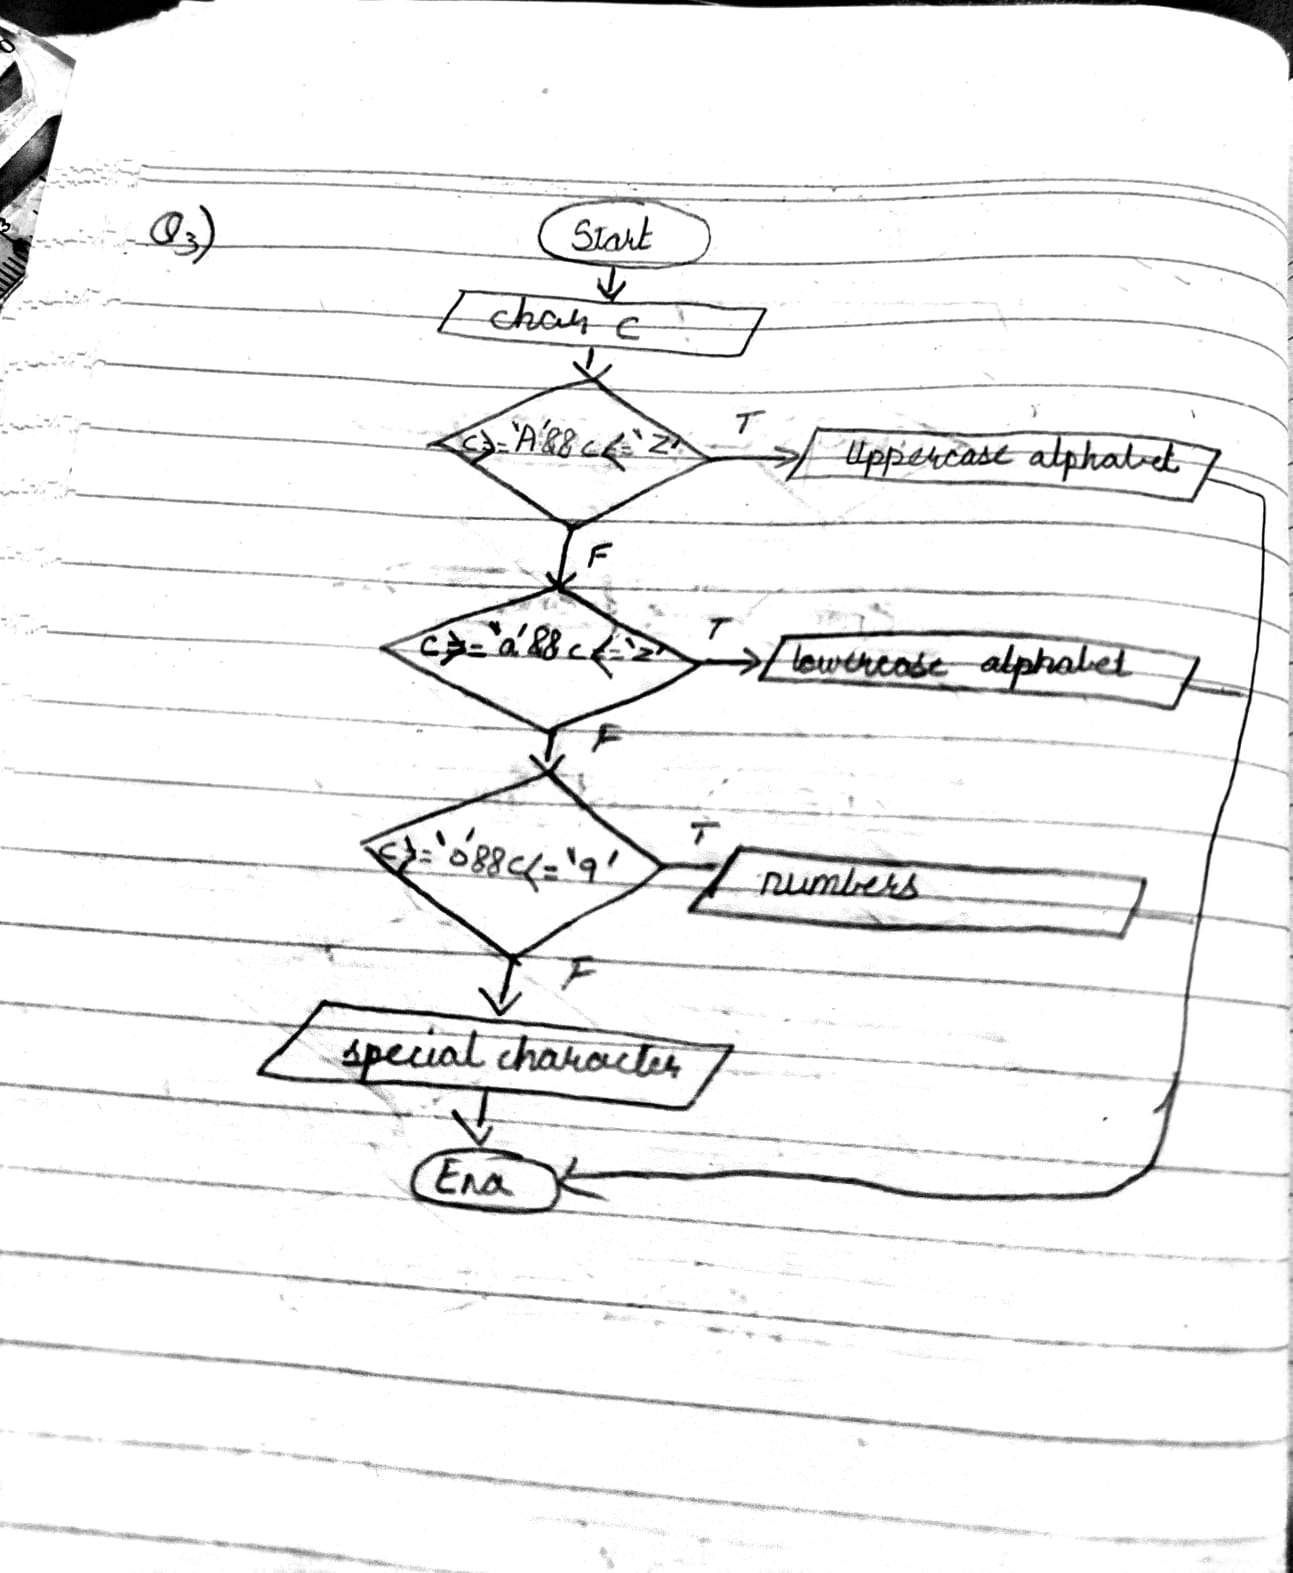 Q3)
Start
char c
c>='A'&&c<='Z'
T
Uppercase alphabet
F
c>='a'&&c<='z'
T
lowercase alphabet
F
c>='0'&&c<='9'
T
numbers
F
special character
End